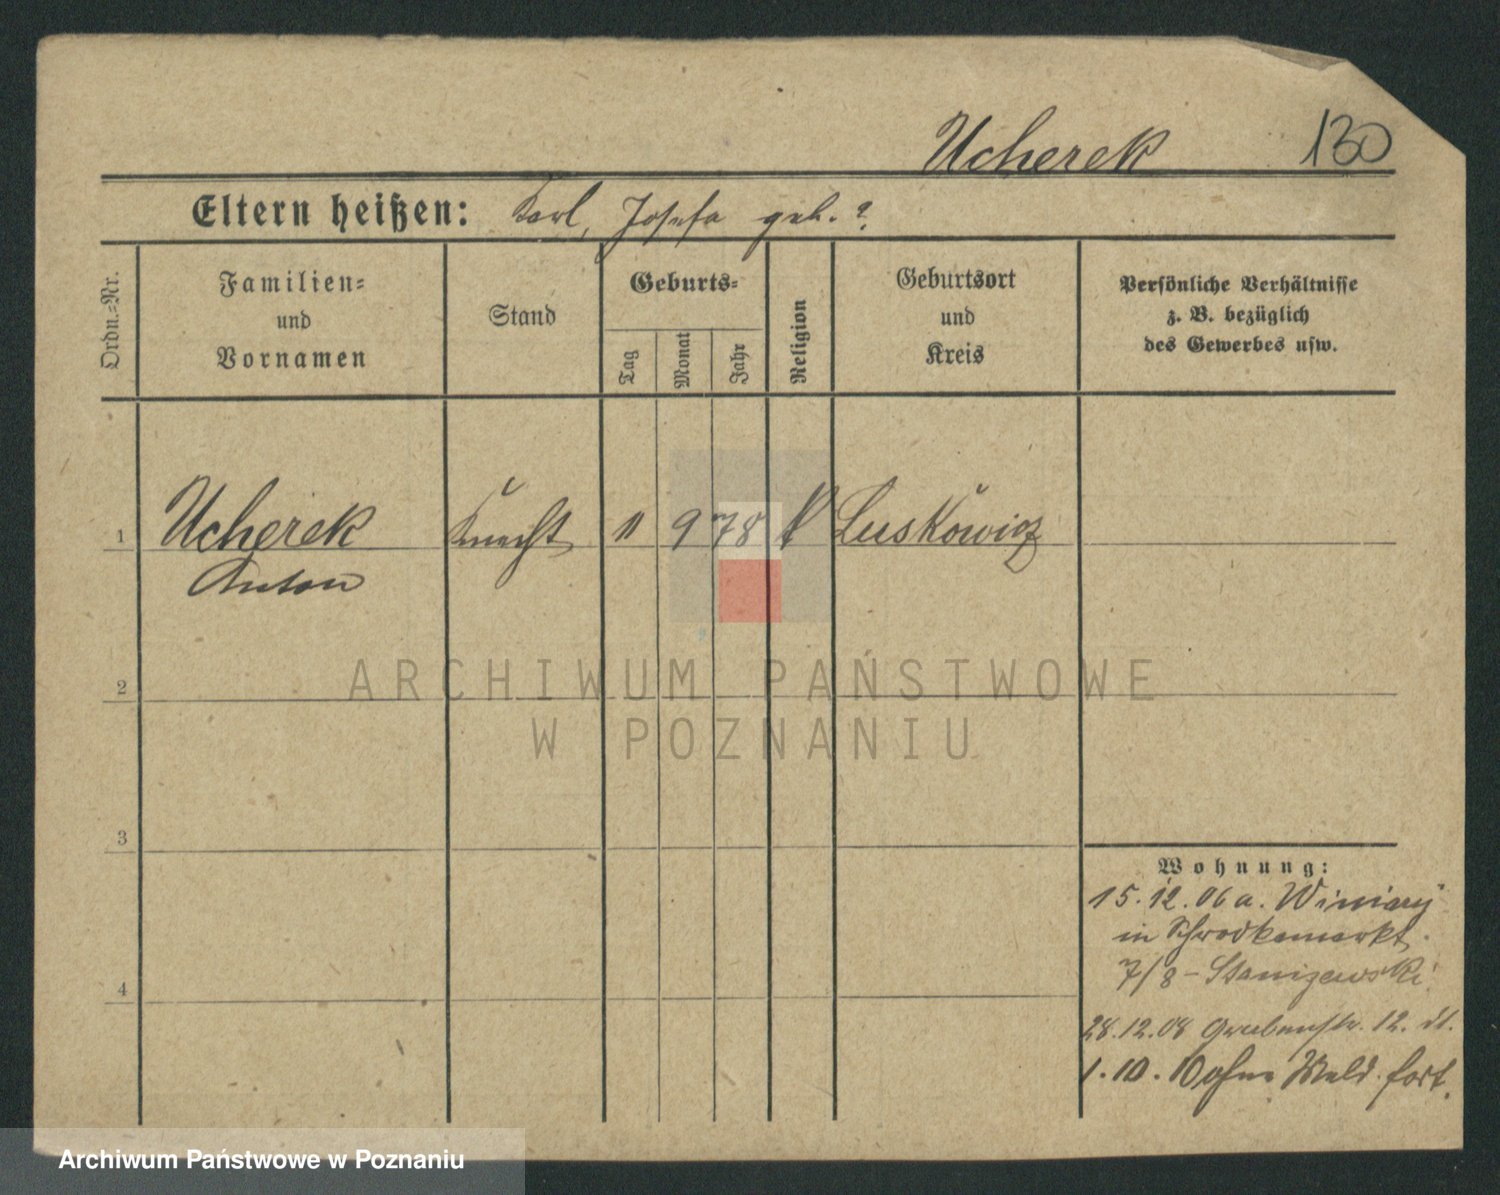 Ucherek 130
Eltern heißen: Karl, Josefa geb. ?
Ordn.-Nr.
Familien-
und
Vornamen
Stand
Geburts-
Tag
Monat
Jahr
Religion
Geburtsort
und
Kreis
Persönliche Verhältnisse
z. B. bezüglich
des Gewerbes usw.
1 Ucherek Knecht 11 9 78 k Luskowicz
Anton
2
3
4
Wohnung:
15.12.06 a. Winiary
in Schrodkamarkt
7/8 - Stanizewski
28.12.08 Grabenstr. 12. dt.
1.10.10 ohne Meld. fort.
ARCHIWUM PAŃSTWOWE
W POZNANIU
Archiwum Państwowe w Poznaniu